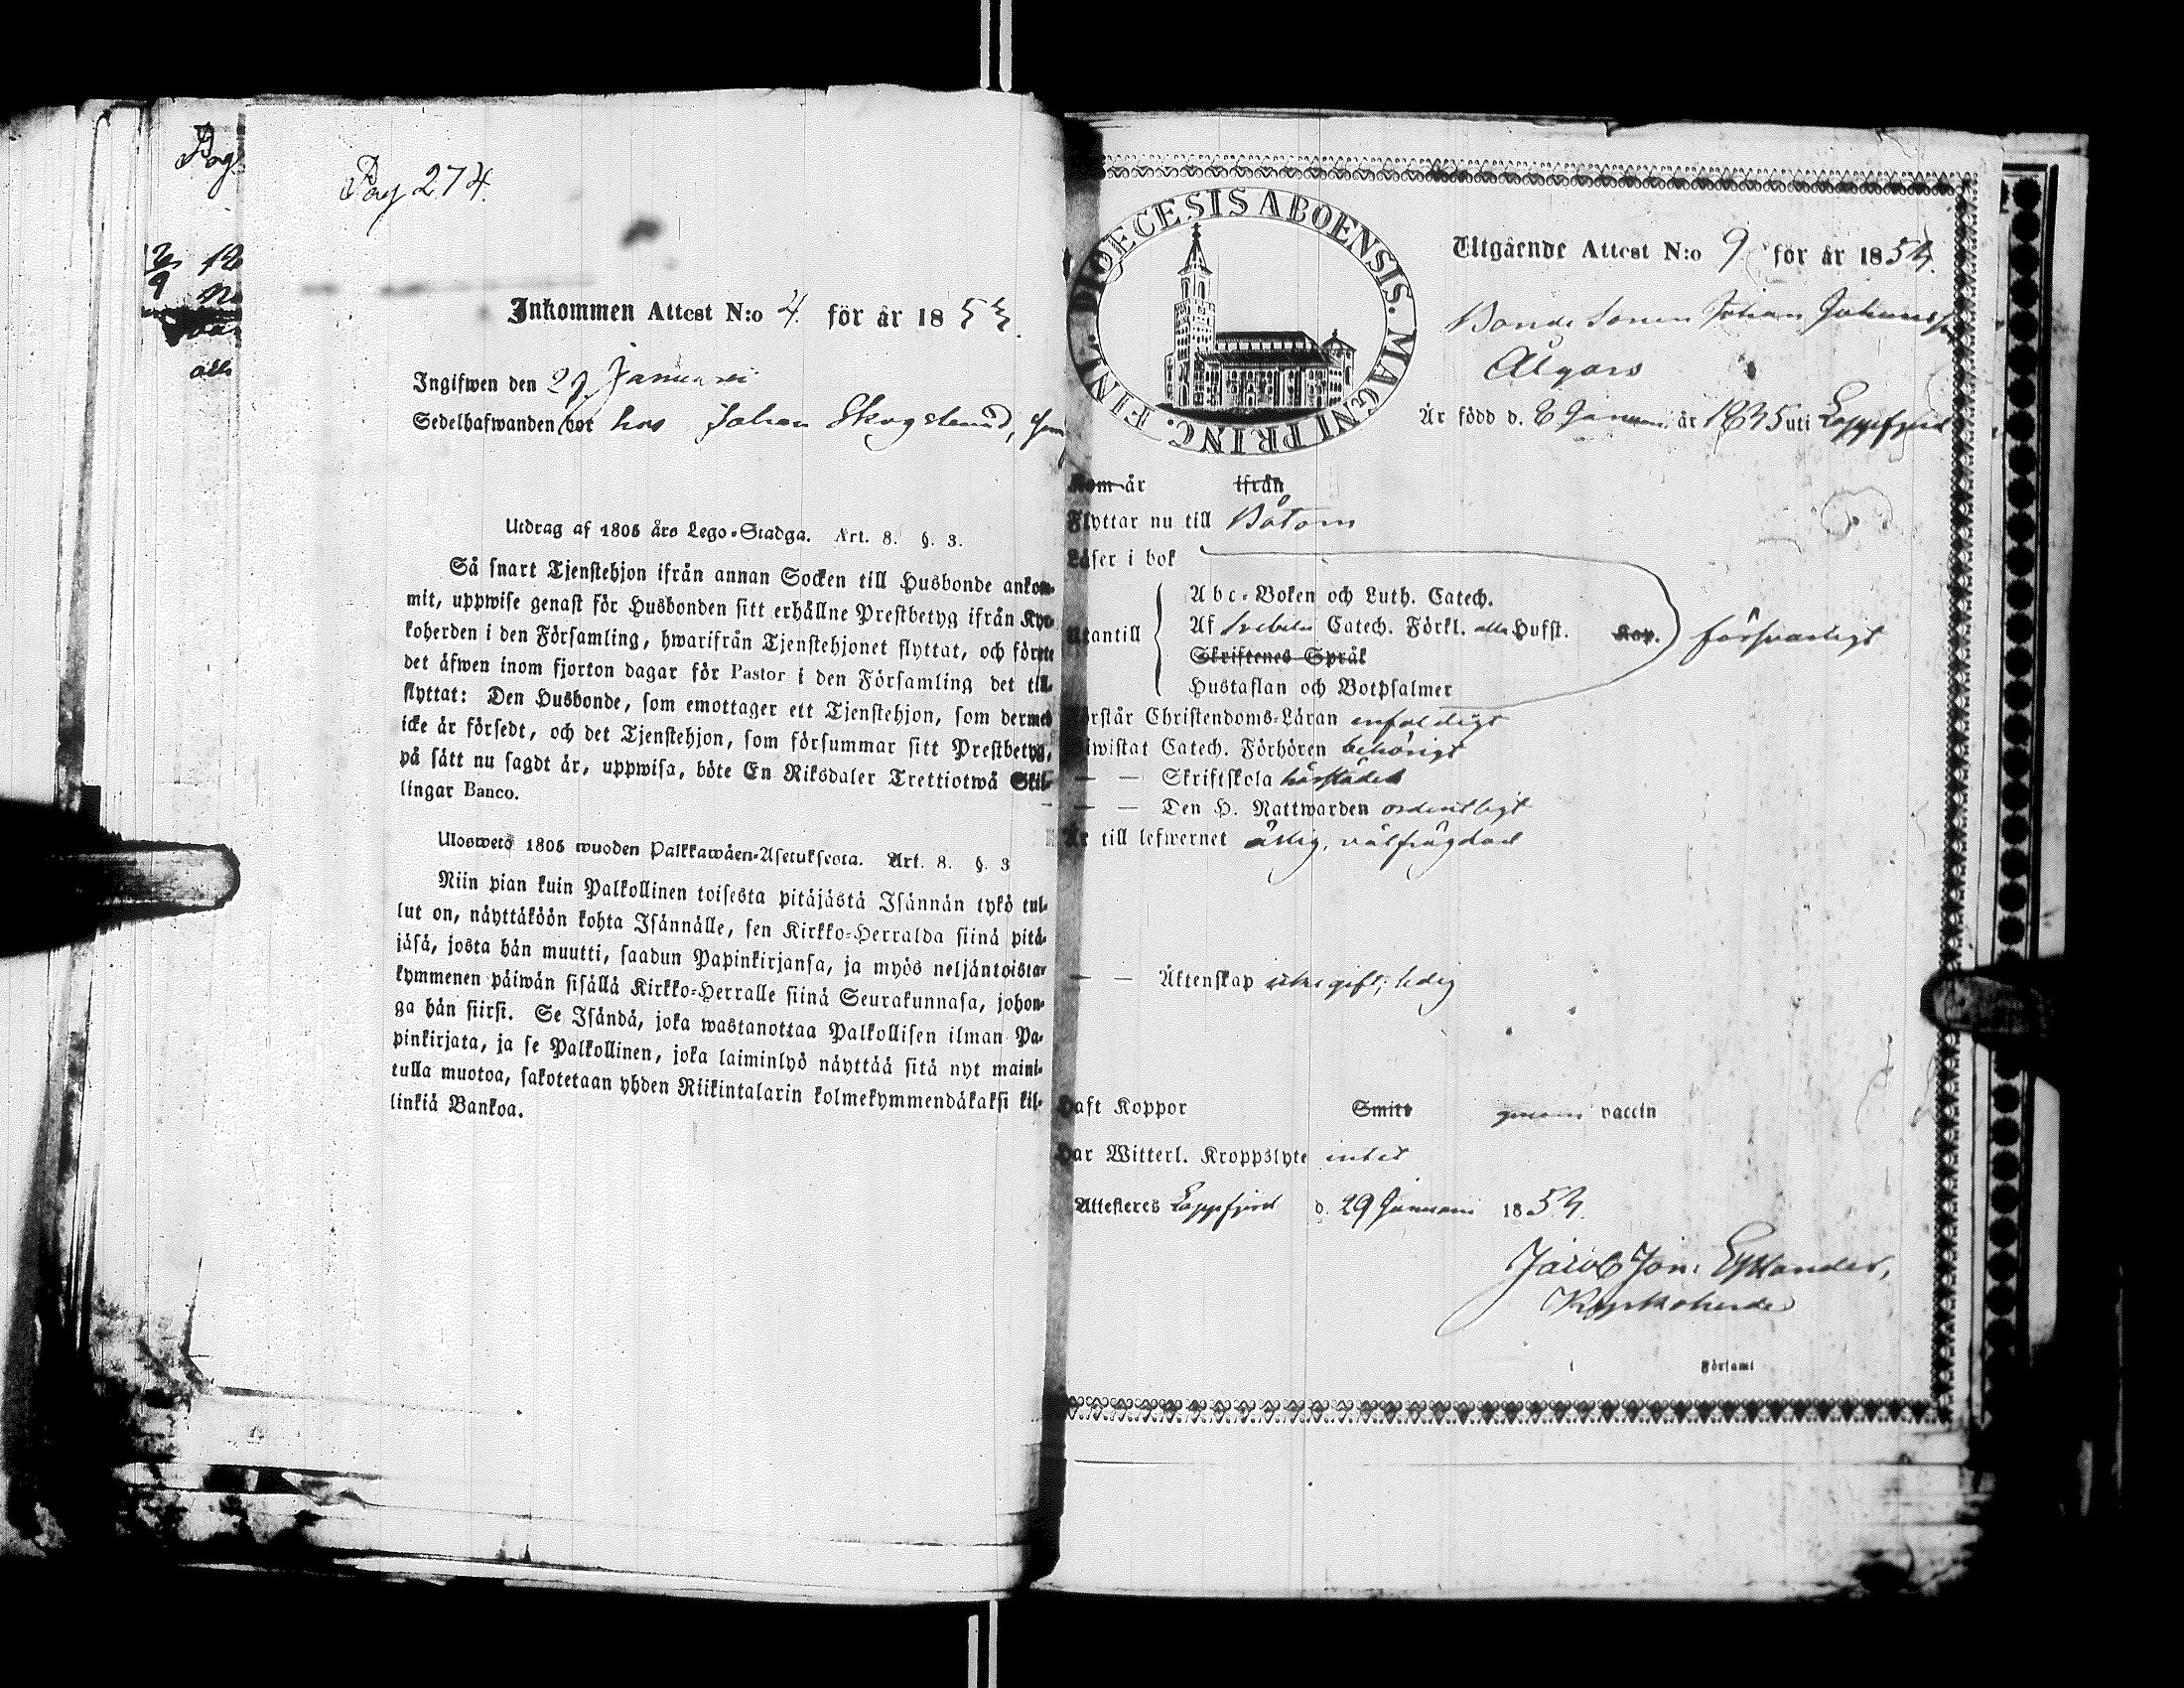 Pag 274.
Inkommen Attest N:o 4. för år 1853.
Ingifwen den 29 Januari
Sedelhafwanden bor hos Johan Skogslund,
Utdrag af 1805 års Lego-Stadga. Art. 8. §. 3.
Så snart Tjenstehjon ifrån annan Socken till Husbonde ankom-
mit, uppwise genast för Husbonden sitt erhållne Prestbetyg ifrån Kyr-
koherden i den Församling, hwarifrån Tjenstehjonet flyttat, och förete
det äfwen inom fjorton dagar för Pastor i den Församling det till-
flyttat: Den Husbonde, som emottager ett Tjenstehjon, som dermed
icke är försedt, och det Tjenstehjon, som försummar sitt Prestbetyg,
på sätt nu sagdt är, uppwisa, böte En Riksdaler Trettiotwå Skil-
lingar Banco.
Uloswetö 1805 wuoden Palkkawäen-Asetuksesta. Art. 8. §. 3
Niin pian kuin Palkollinen toisesta pitäjästä Isännän tykö tul-
lut on, näyttäköön kohta Isännälle, sen Kirkko-Herralda siinä pitä-
jäsä, josta hän muutti, saadun Papinkirjansa, ja myös neljäntoista-
kymmenen päiwän sisällä Kirkko-Herralle siinä Seurakunnasa, johon-
ga hän siirsi. Se Isändä, joka wastanottaa Palkollisen ilman Pa-
pinkirjata, ja se Palkollinen, joka laiminlyö näyttää sitä nyt maini-
tulla muotoa, sakotetaan yhden Riikintalarin kolmekymmendäkaksi kil-
linkiä Bankoa.
DIOECESIS ABOENSIS. MAGNI PRINC. FINL.
Utgående Attest N:o 9 för år 1853.
Bonde Sonen Johan Johansson
Ålgars
Är född d. 8 Januari år 1835 uti Lappfjerd
Kom år ifrån
Flyttar nu till Båtom
Läser i bok
Utantill
Abc-Boken och Luth. Catech.
Af Svebilii Catech. Förkl. alla Hufst. Kap. försvarligt
Skriftenes Språk
Hustaflan och Botpsalmer
Förstår Christendoms-Läran enfaldigt
Biwistat Catech. Förhören behörigt
— — Skriftskola härstädes
— — Den H. Nattwarden ordentligt
Är till lefwernet ärlig, välfrägdad
— — Äktenskap icke gift; ledig
Haft Koppor Smitt genom vaccin
Har Witterl. Kroppslyte intet
Attesteres Lappfjerd d. 29 Januari 1853.
Jacob Jon: Estlander,
Kyrkoherde
i Församl